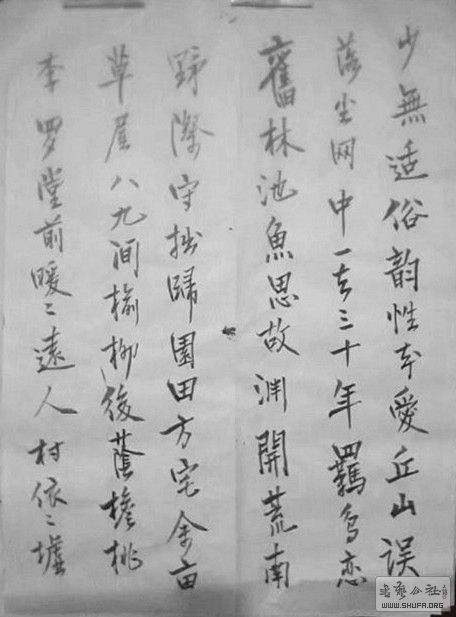 少無适俗韵性本愛丘山误
落尘网中一去三十年羈鸟恋
舊林池魚思故渊開荒南
野際守拙歸園田方宅余亩
草屋八九间榆柳後蔭檐桃
李罗堂前暖〻遠人村依〻墟
书艺公社
WWW.SHUFA.ORG